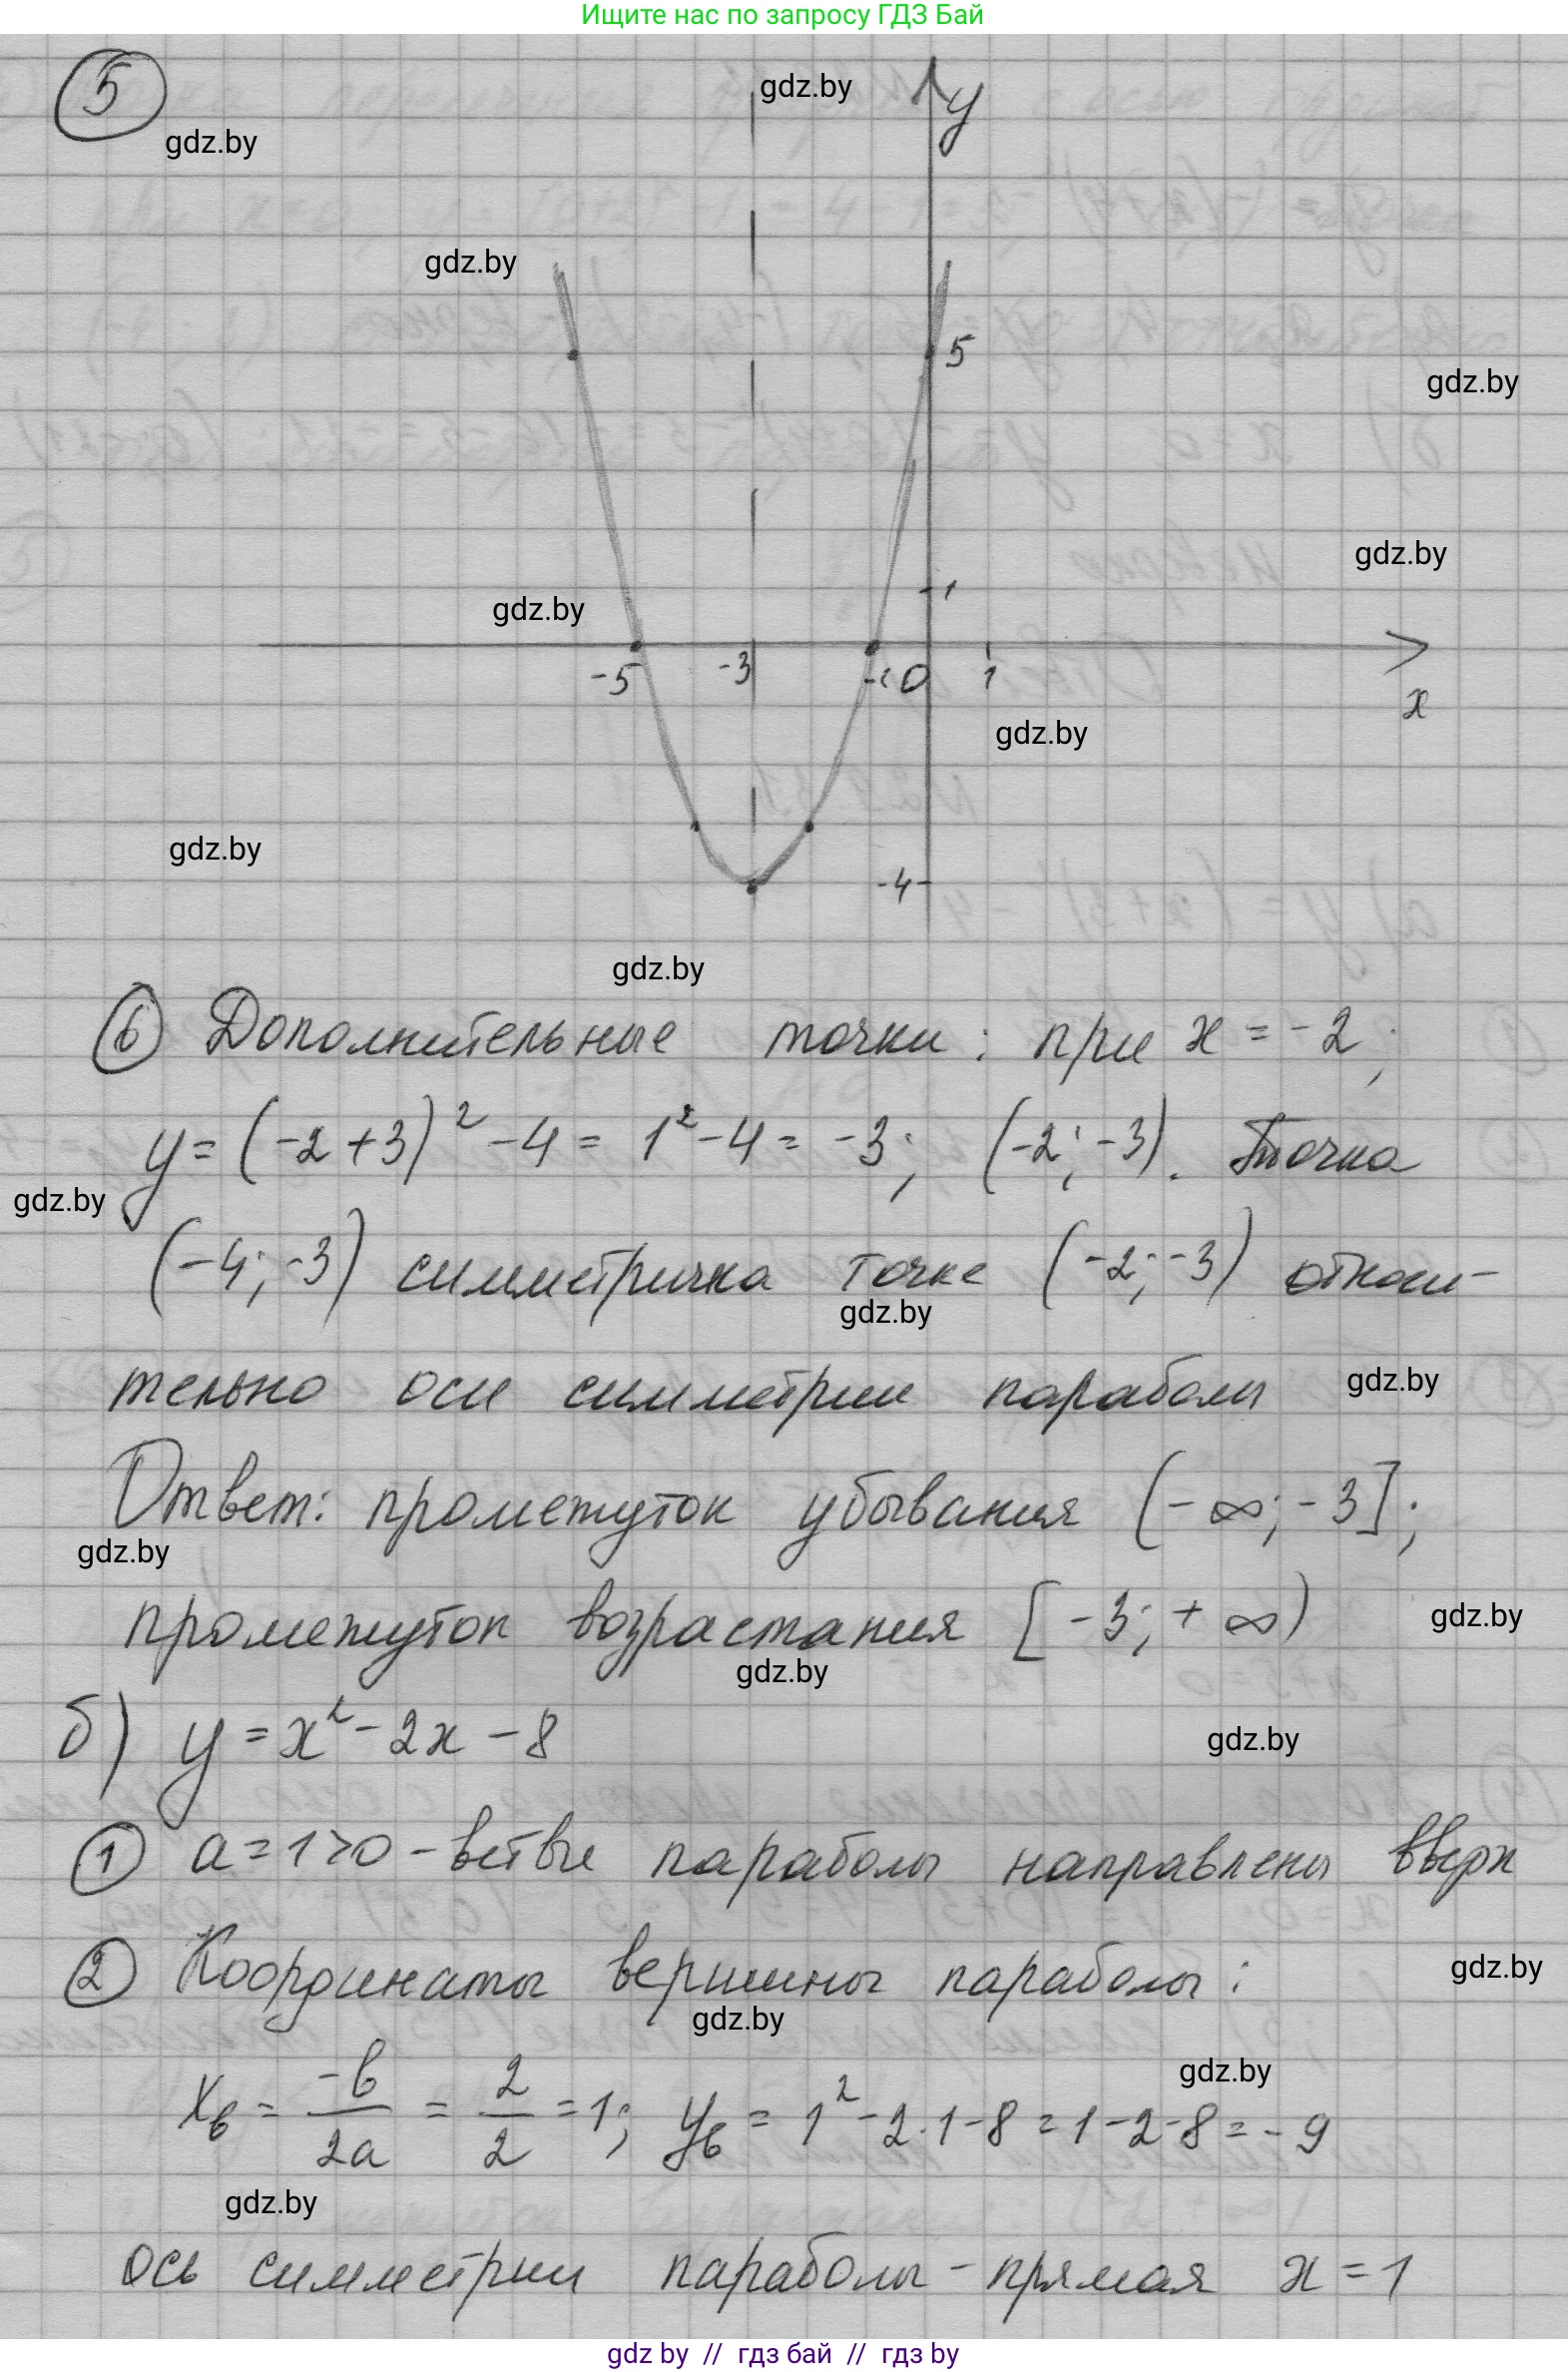 Ищите нас по запросу ГДЗ Бай
5
gdz.by
gdz.by
y
gdz.by
5
gdz.by
gdz.by
1
gdz.by
-5 -3 -1 0 1
x
gdz.by
gdz.by
-4
gdz.by
6 Дополнительные точки: при x = -2;
y = (-2+3)² - 4 = 1² - 4 = -3; (-2; -3). Точка
gdz.by
(-4; -3) симметрична точке (-2; -3) относи-
gdz.by
тельно оси симметрии параболы
gdz.by
Ответ: промежуток убывания (-∞; -3];
gdz.by
промежуток возрастания [-3; +∞)
gdz.by
gdz.by
б) y = x² - 2x - 8
gdz.by
1 a = 1 > 0 - ветви параболы направлены вверх
2 Координаты вершины параболы:
gdz.by
gdz.by
gdz.by
xв = -b/2a = 2/2 = 1; yв = 1² - 2·1 - 8 = 1 - 2 - 8 = -9
gdz.by
ось симметрии параболы - прямая x = 1
gdz by // гдз бай // гдз by